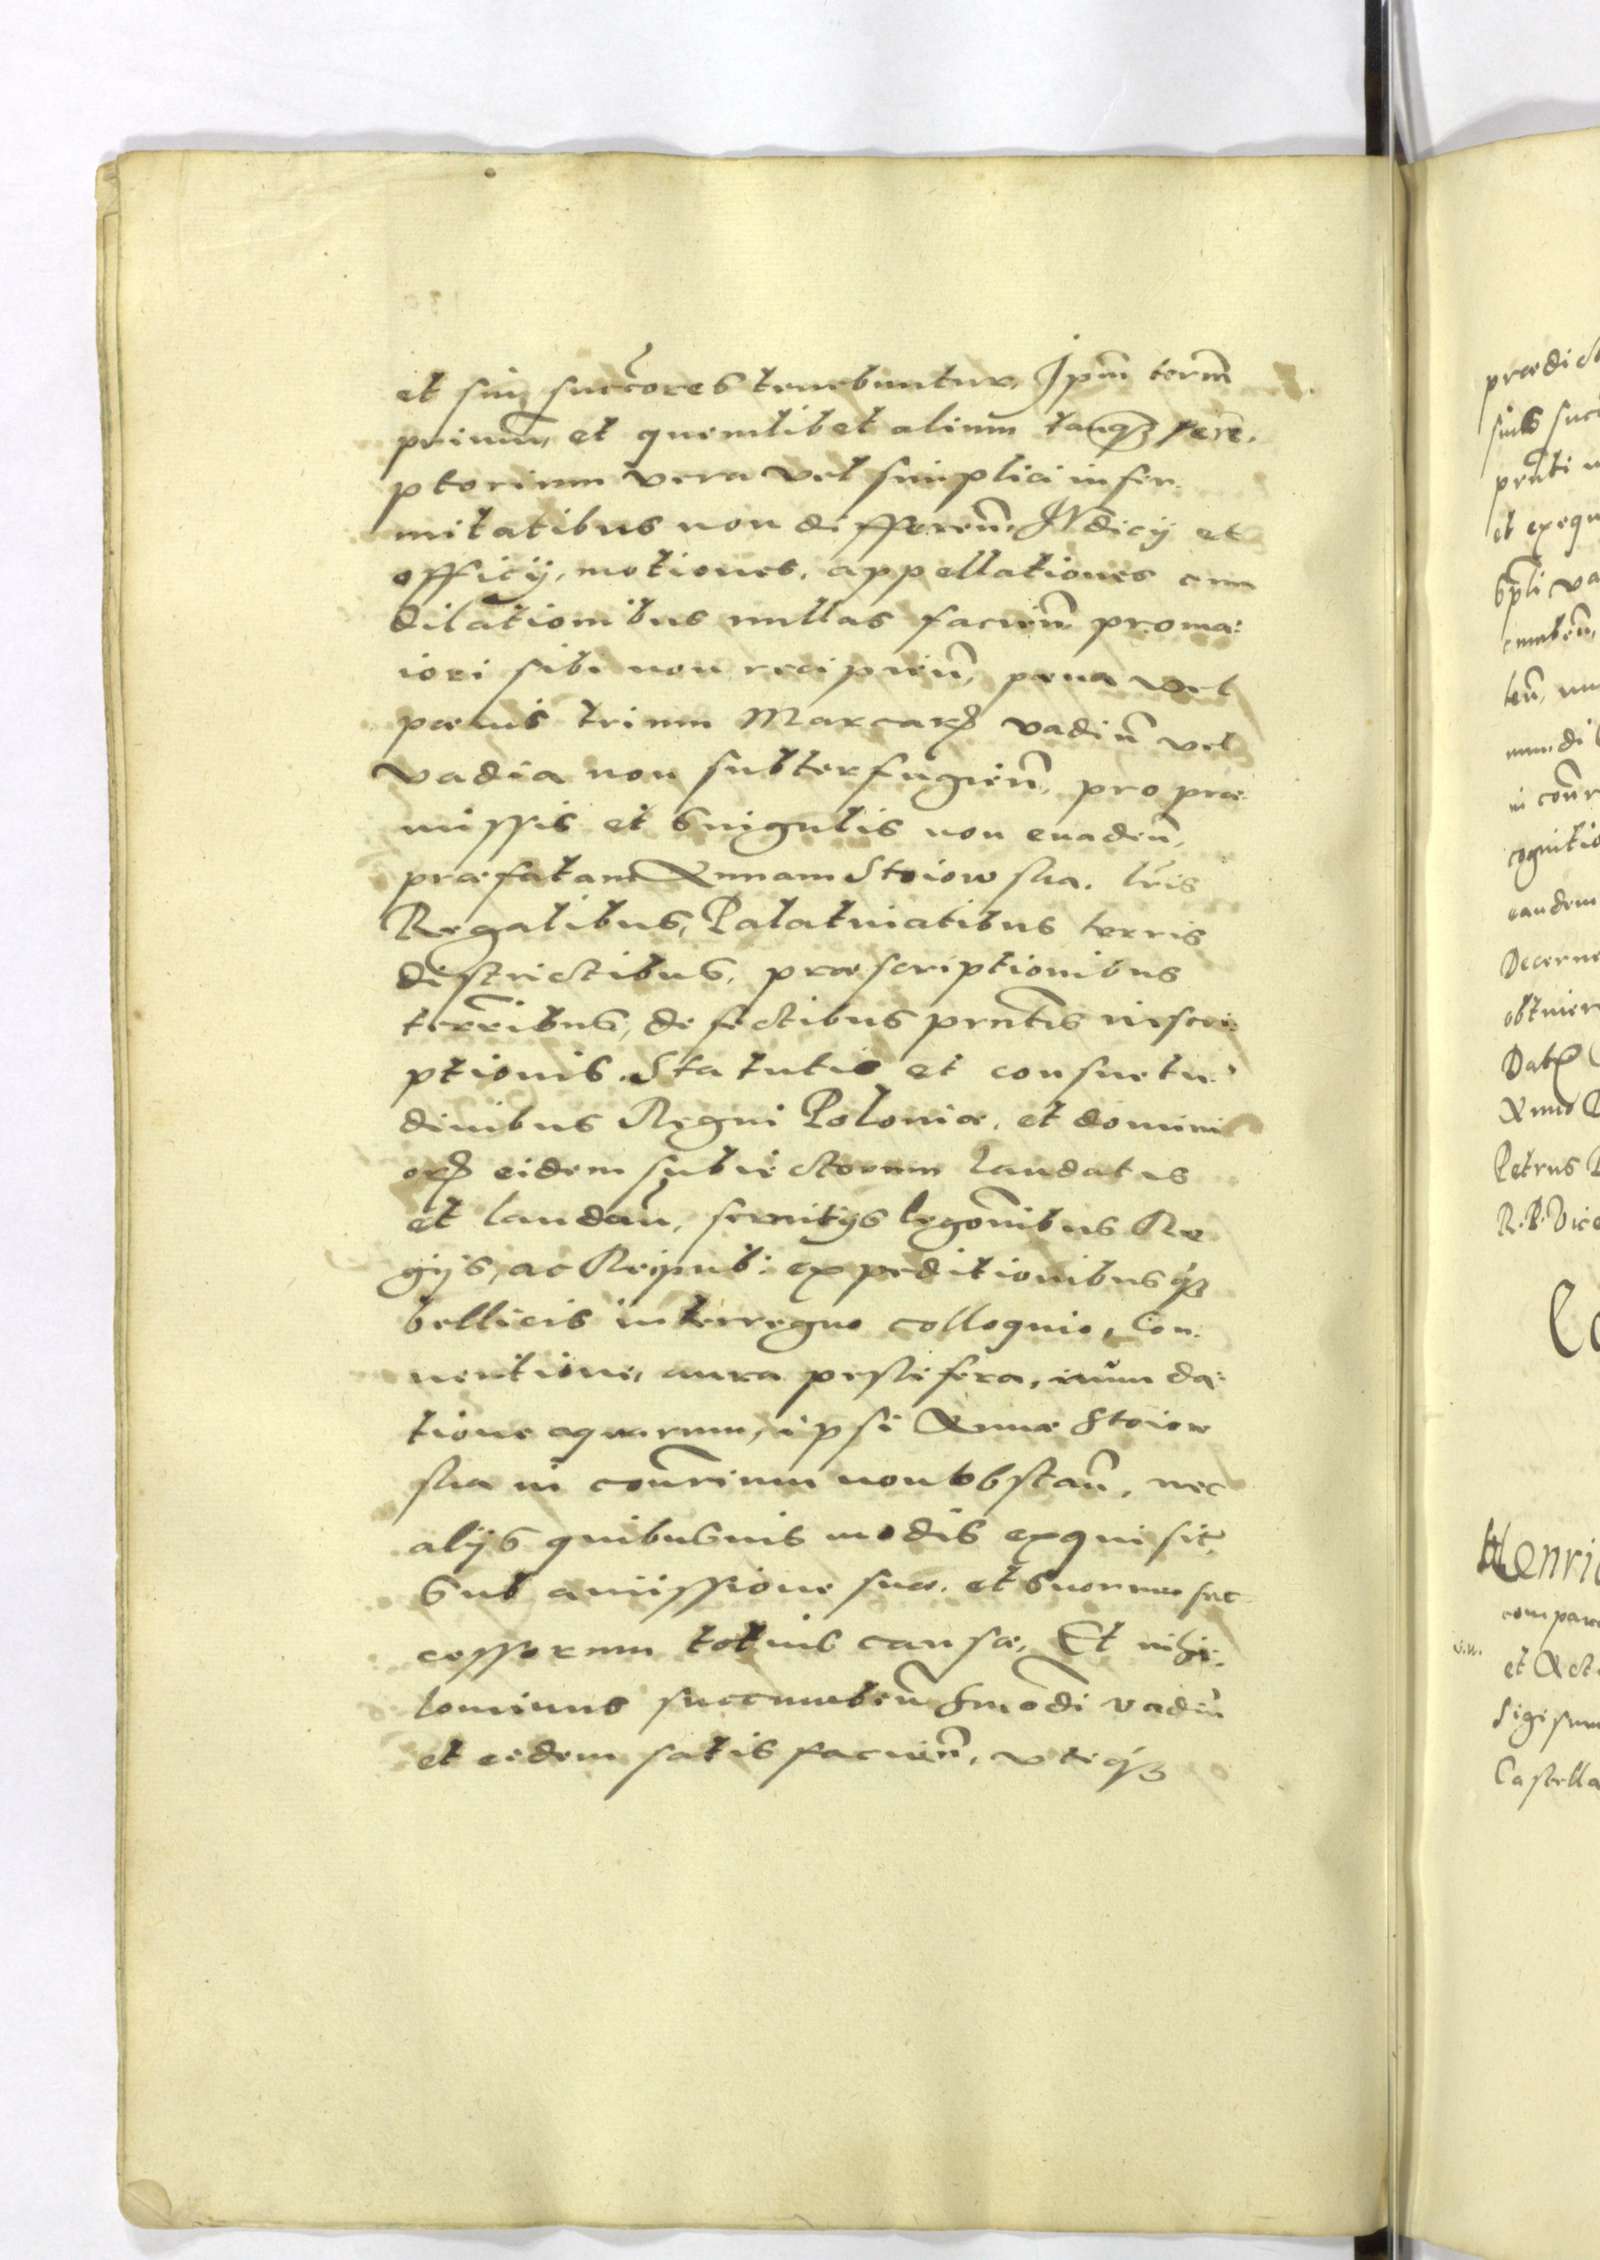 et sui succ̃ores tenebuntur, Ipm̃ term̃
primum, et quemlibet alium tanq3 perẽ-
ptorium vera vel simplici infir-
mitatibus non differen̄ Iudicij et
officij, motiones, appellationes cum
dilationibus nullas facien̄ pro ma:
iori sibi non recipien̄, pœna vel
pœnis trium Marcarꝝ vadiū vel
vadia non subterfugien̄, pro præ-
missis et singulis non evaden̄,
præfatam Annam Stoiowska. lr̃is
Regalibus, Palatinatibus terris
districtibus, præscriptionibus
terr̃ribus, defectibus pn̄tis inscri-
ptionis Statutis et consuetu-
dinibus Regni Poloniæ, et domini
orꝝ eidem subiectorum laudatis
et laudan̄, servitijs legõnibus Re
gijs, ac Reipub: expeditionibusq3
bellicis interregno colloquio, Con-
uentione, aura pestifera, inunda-
tione aquarum, ipsi Annæ Stoiow
ska in con̄rium non obstan̄, nec
alijs quibusuis modis exquisit,
Sub amissione suæ, et suorum suc
cessorum totius causæ, Et nihi-
lominus succumben̄ hm̃odi vadiū
et eidem satisfacien̄, vtiq3
prædi
suis succ
pn̄ti
et exequ
spli va
cumben̄,
ten̄,
in con̄r
cognitio
eandem
Decerne
obtiner
Datꝫ
Anno
Petrus
R. P. Vice
Co
Henric
compare
et Act
Sigism
Castella